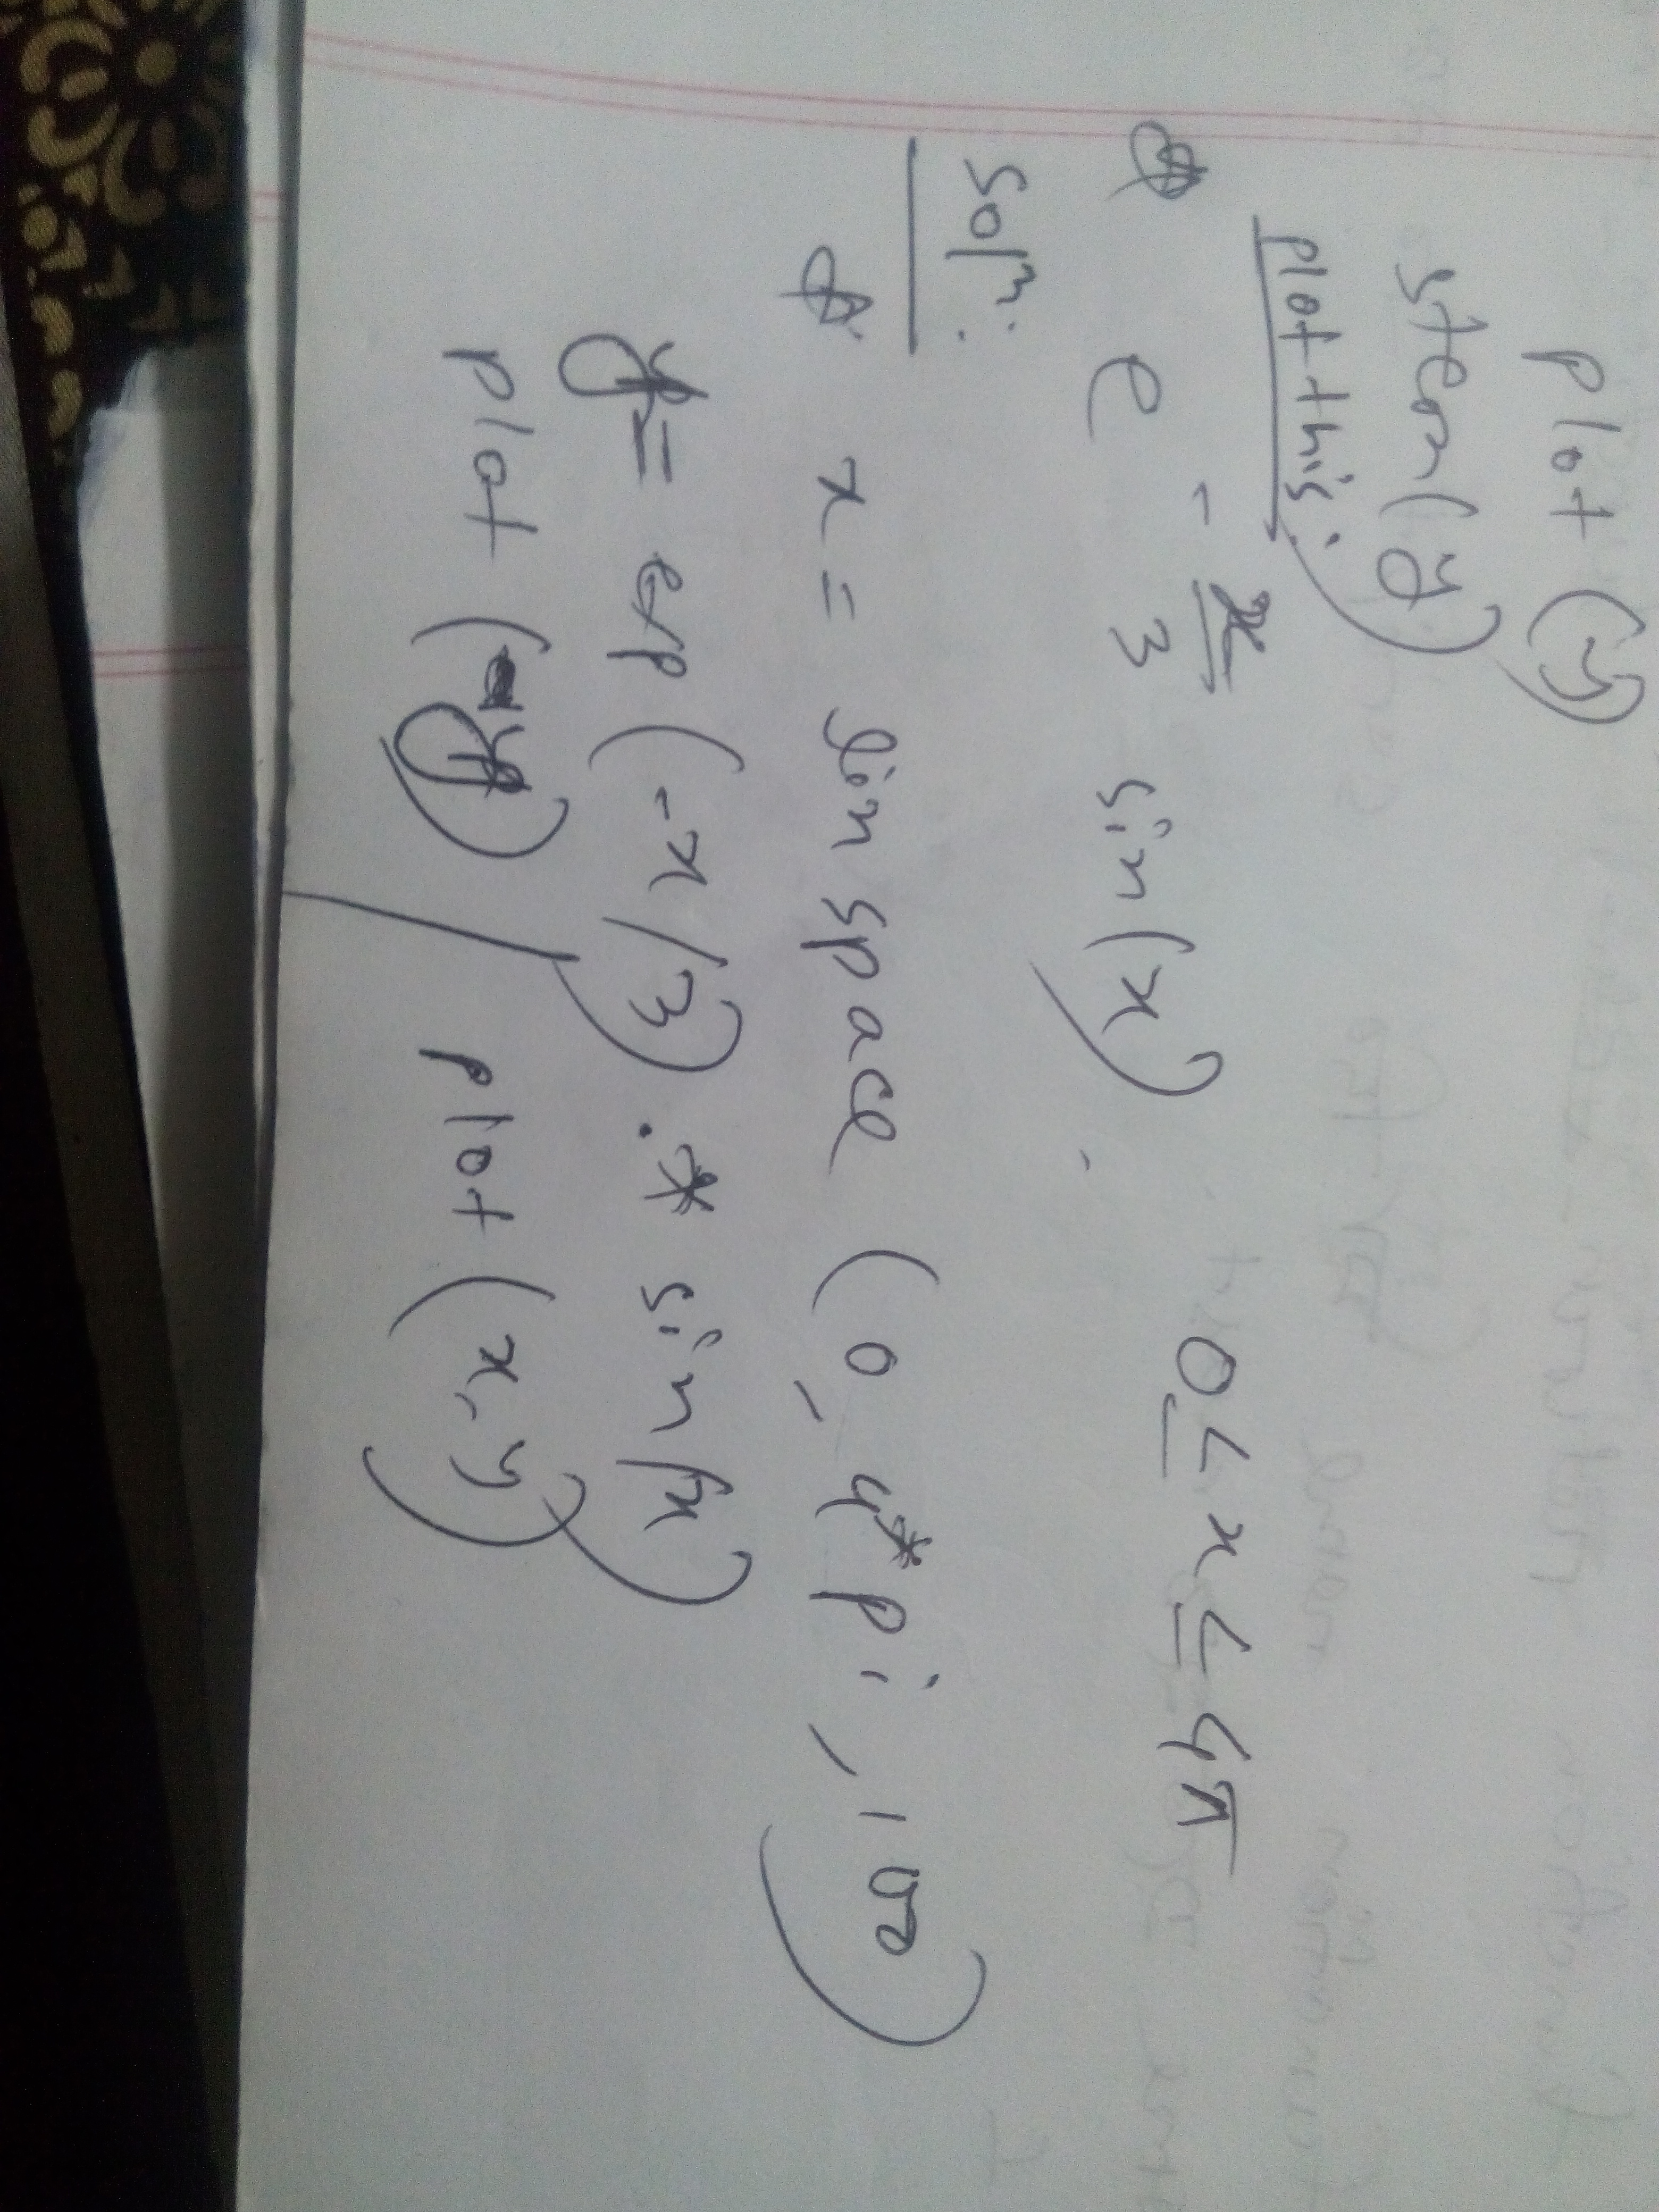 plot (y)
stem (y)
plot this:
e^-x/3 sin(x) 0 ≤ x ≤ 4π
Soln.
x = linspace (0, 4*pi, 100)
y = exp (-x/3) .* sin(x)
plot (y) / plot (x, y)